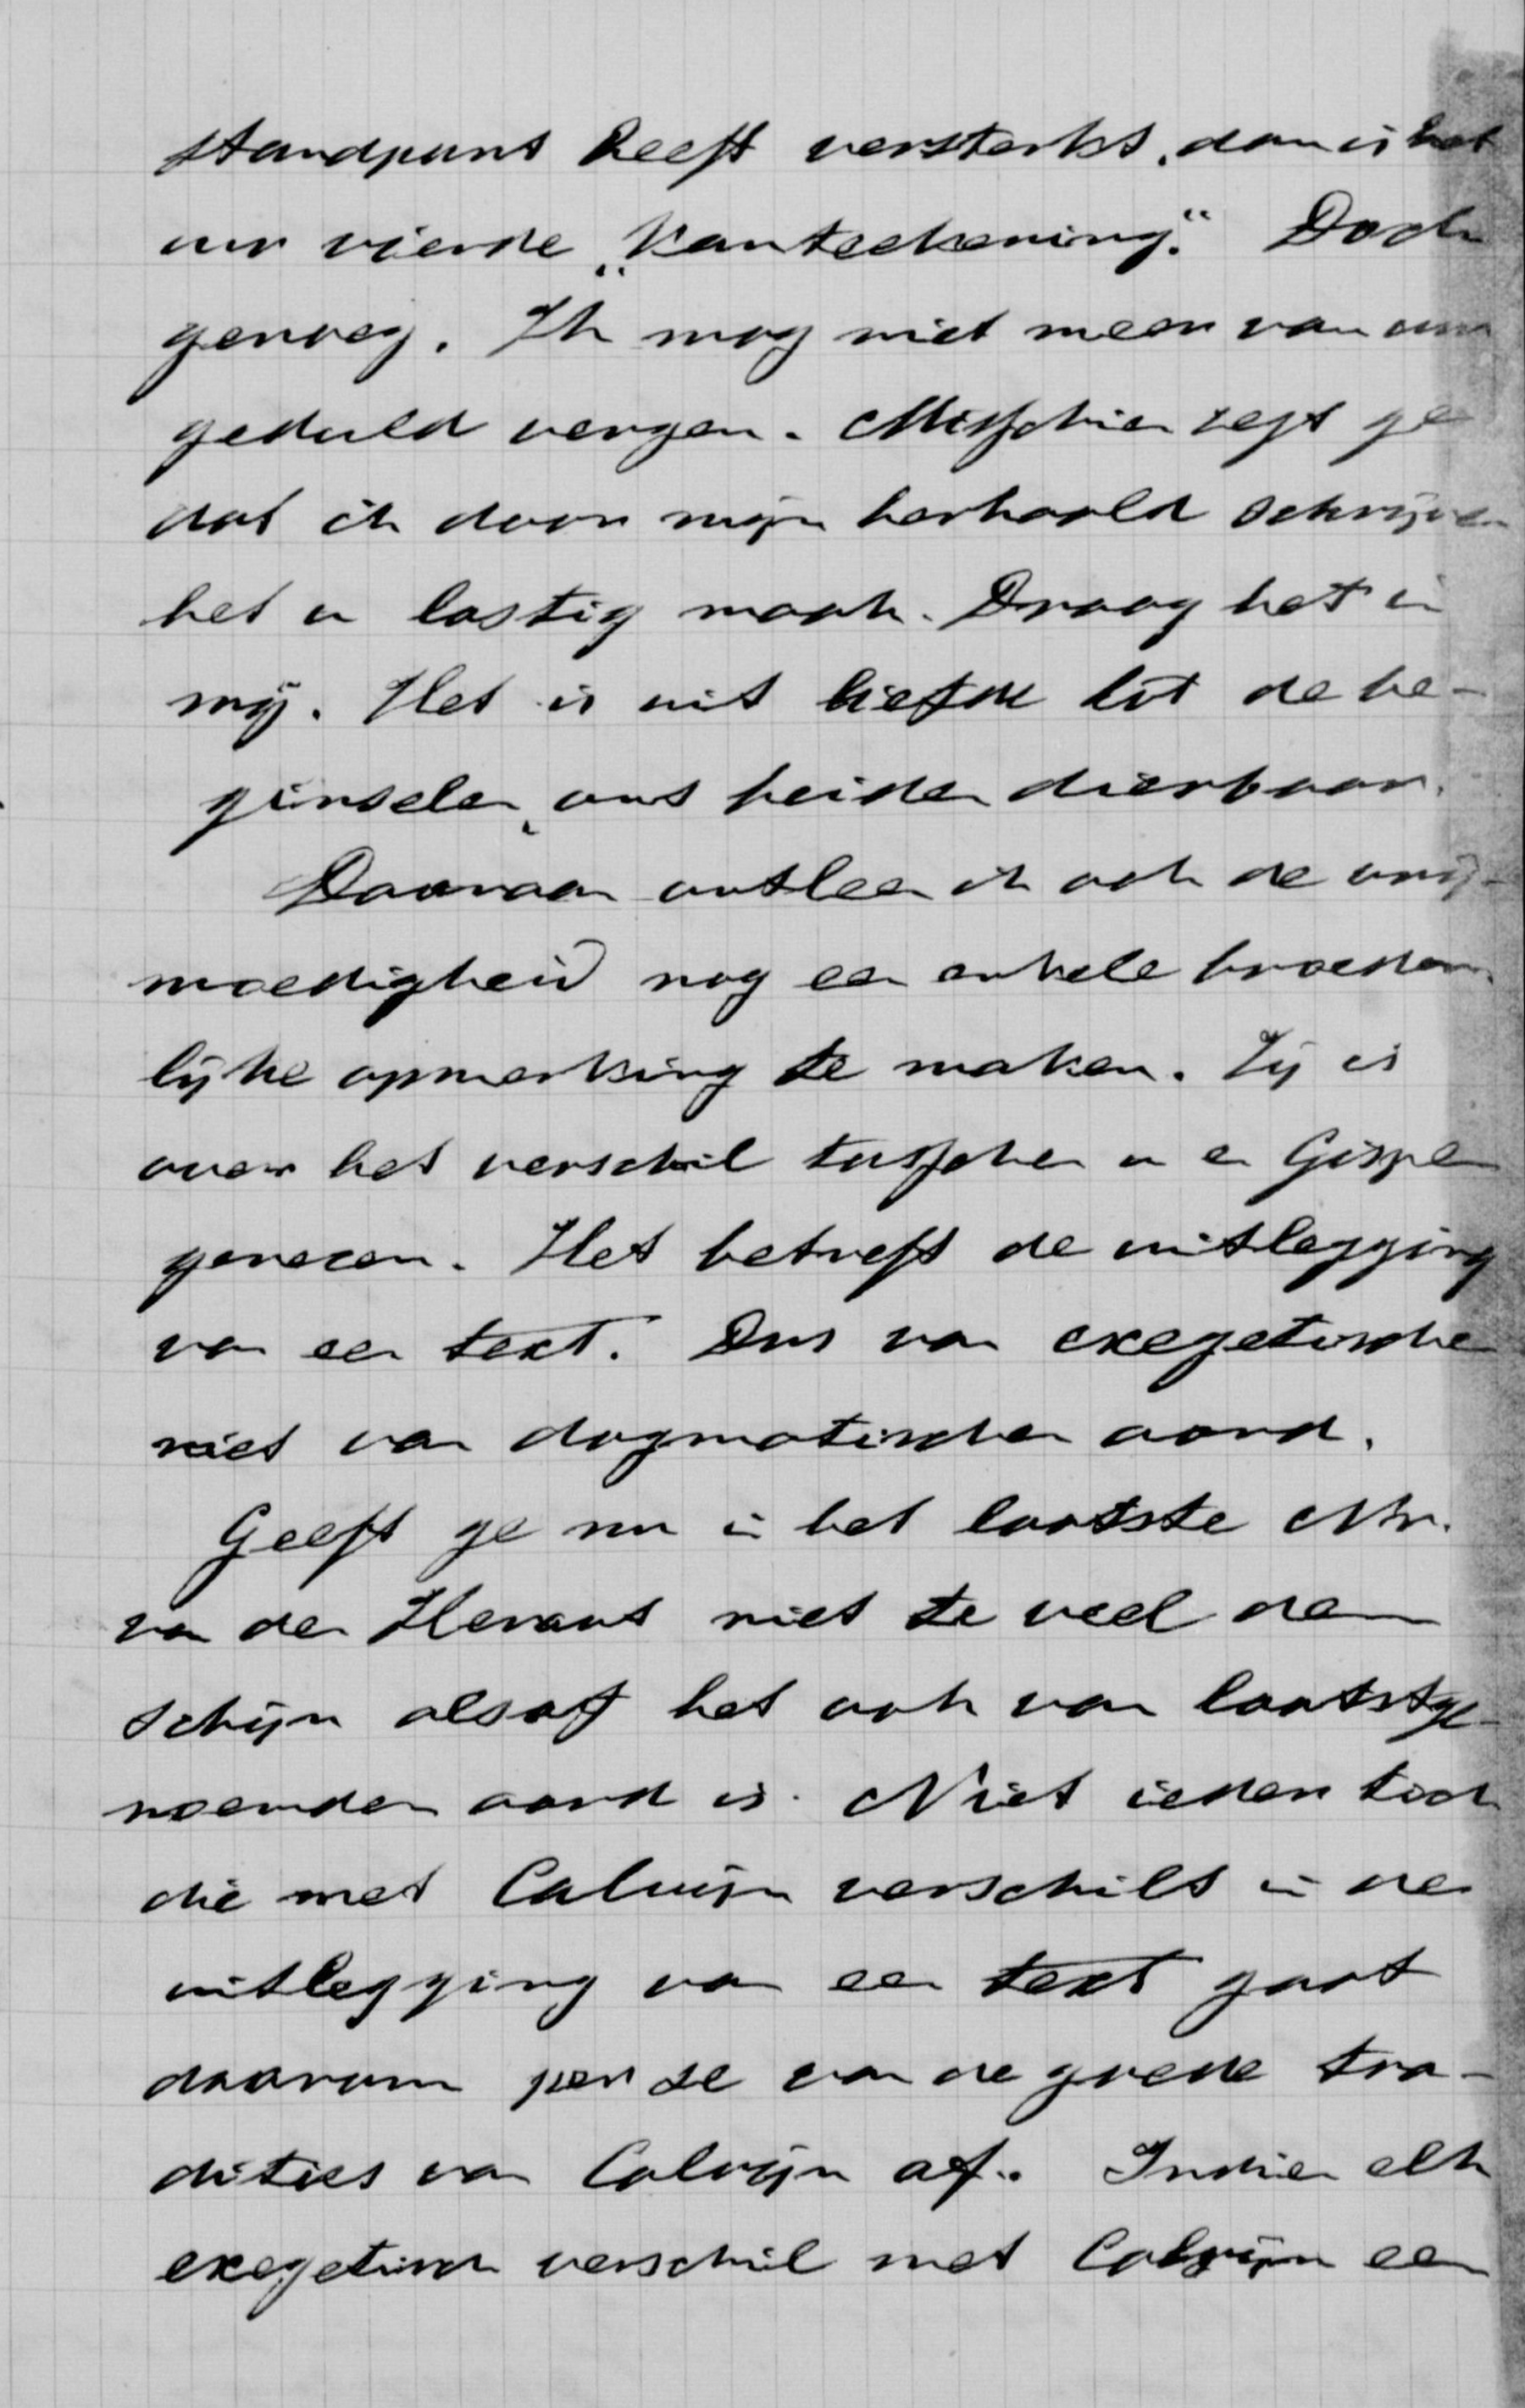 standpunt heeft versterkt, dan is het
uw vierde „Kantteekening.“ Doch
genoeg. Ik mag niet meer van uw
geduld vergen. Misschien zegt ge
dat ik door mijn herhaald schrijven
het u lastig maak. Draag het in
mij. Het is uit liefde tot de be-
ginselen, ons beiden dierbaar.
Daaraan ontleen ik ook de vrij-
moedigheid nog een enkele broeder-
lijke opmerking te maken. Zij is
over het verschil tusschen u en Gispen
gerezen. Het betreft de uitlegging
van een text. Dus van exegetische
niet van dogmatischen aard.
Geeft ge nu in het laatste Nr.
van den Heraut niet te veel den
schijn alsof het ook van laatstge-
noemden aard is. Niet ieder toch
die met Calvijn verschilt in de
uitlegging van een text gaat
daarom per se van de goede tra-
dities van Calvijn af. Indien elk
exegetisch verschil met Calvijn een